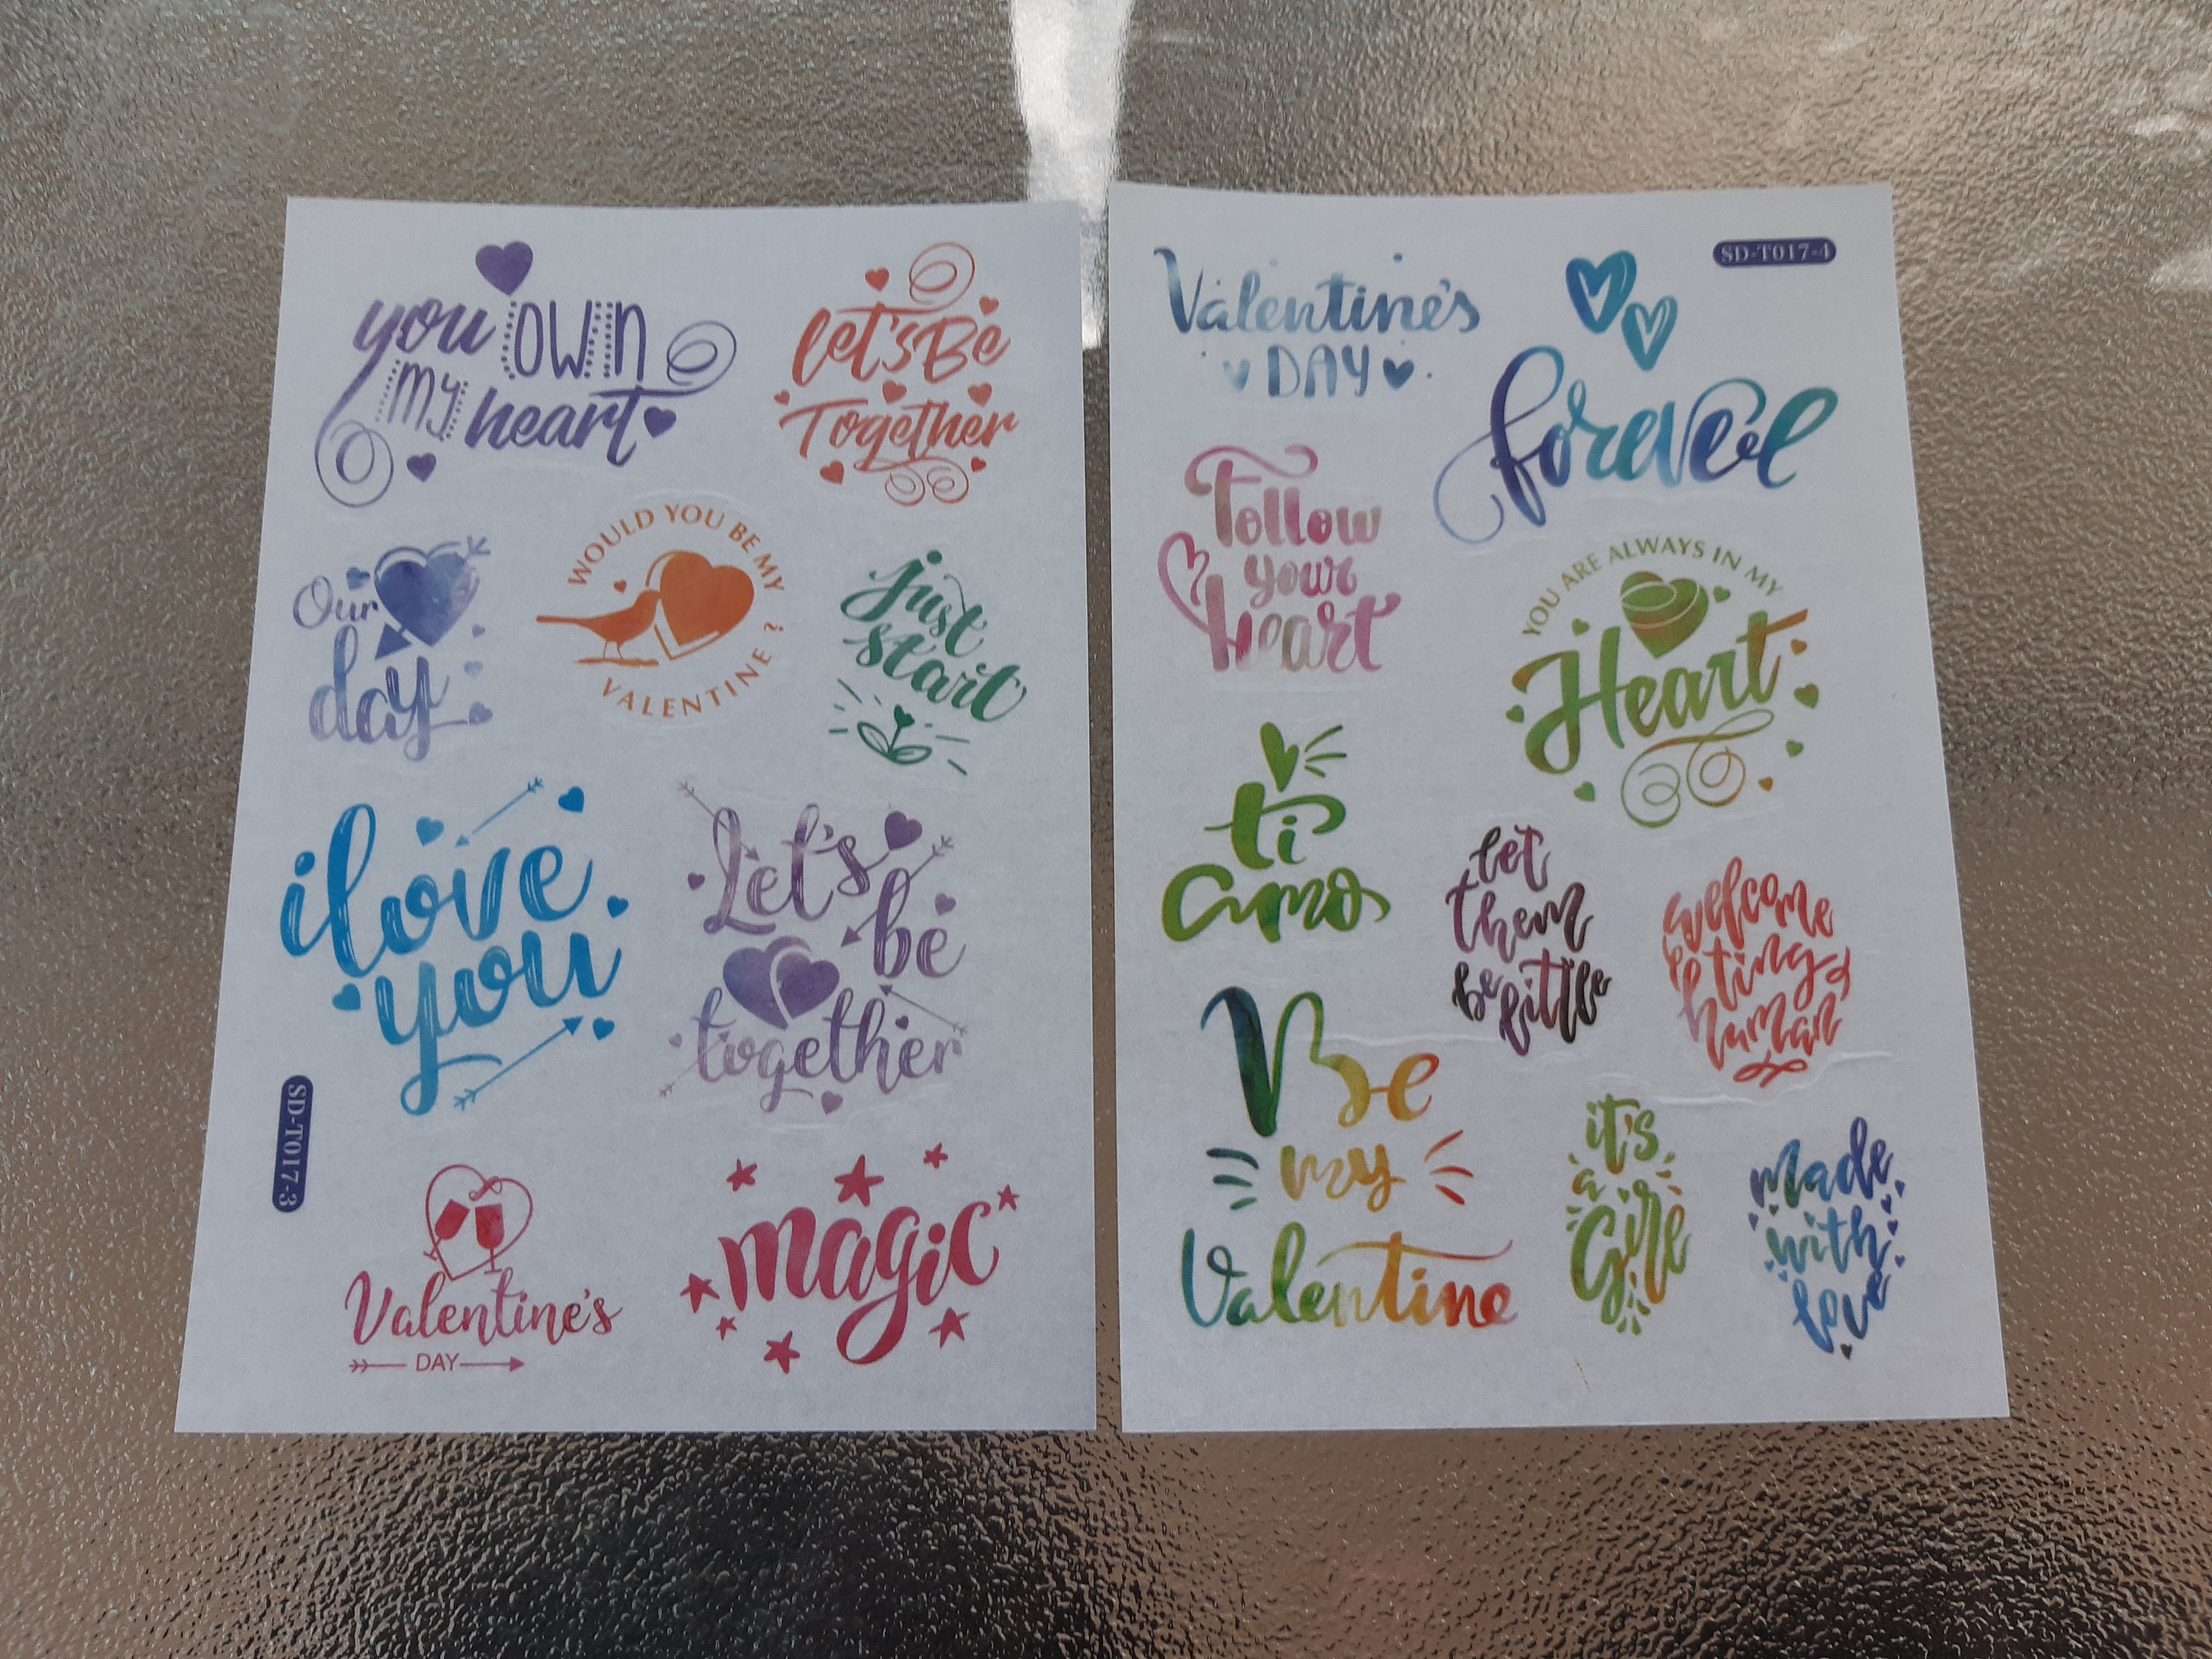 you own
my heart
let's Be
Together
Our
day
WOULD YOU BE MY
VALENTINE ?
just
start
i love
you
Let's
be
together
SD-T017-3
Valentine's
DAY
magic
SD-T017-4
Valentine's
DAY
forever
Follow
your
heart
YOU ARE ALWAYS IN MY
Heart
ti
amo
let
them
be little
welcome
ting
human
Be
my
Valentine
it's
a
Girl
made
with
love